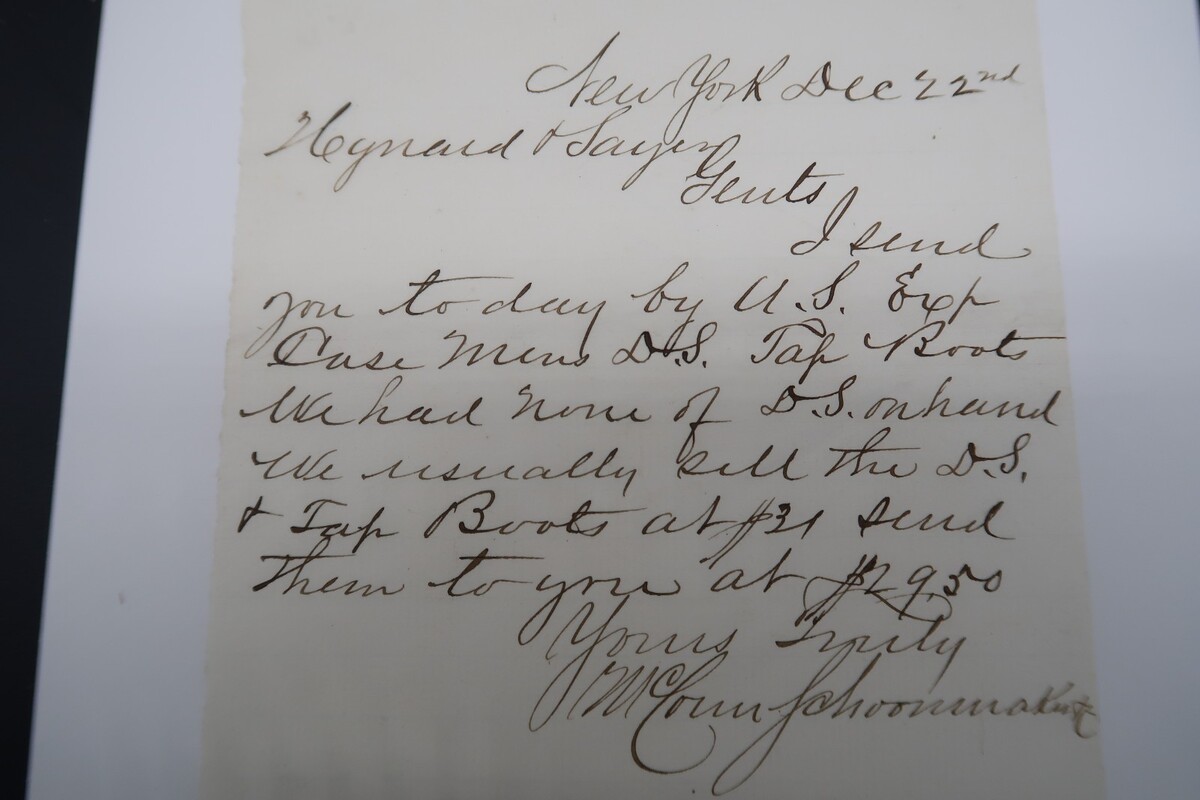 New York Dec 22nd
Hynard & Sayer
Gents
I send
you to day by U.S. Exp
Case Mens D.S. Tap Boots
We had none of D.S. on hand
We usually sell the D.S.
& Tap Boots at $31 send
them to you at $29.50
Yours Truly
McConn Schoonmaker